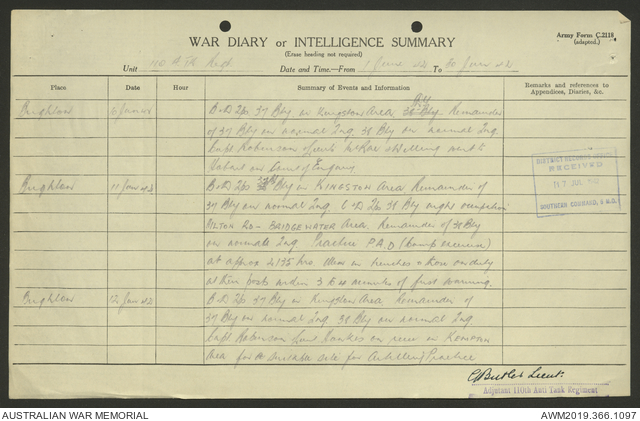 Army Form C.2118
(adapted.)
WAR DIARY or INTELLIGENCE SUMMARY
(Erase heading not required)
Unit 110 A. Tk Regt. Date and Time.—From 1 June 42 To 30 June 42
Place Date Hour Summary of Events and Information Remarks and references to
Appendices, Diaries, &c.
Brighton 6 June 42 B & D Tps 37 Bty in Kingston Area. Remainder
of 37 Bty on normal Tng. 38 Bty on normal Tng.
Capt Robinson Lieuts McRae went to
Hobart on Court of Enquiry
Brighton 11 June 42 B & D Tps 37 Bty in KINGSTON Area Remainder of
37 Bty on normal Tng. C & D Tps 38 Bty night occupation
RD - BRIDGEWATER Area. Remainder of 38 Bty
on normal Tng. Practice P.A.D (Camp exercise)
at approx 2135 hrs. Men in trenches & those on duty
at their posts within 5 6 minutes of first warning.
Brighton 12 June 42 B & D Tps 37 Bty in Kingston Area Remainder of
37 Bty on normal Tng. 38 Bty on normal Tng.
Capt Robinson Lieut on recce in KEMPTON
Area for A suitable site for Artillery Practice
DISTRICT RECORDS OFFICE
RECEIVED
17 JUL
SOUTHERN COMMAND,
C Butler Lieut.
Adjutant 110th Anti Tank Regiment
AUSTRALIAN WAR MEMORIAL AWM2019.366.1097